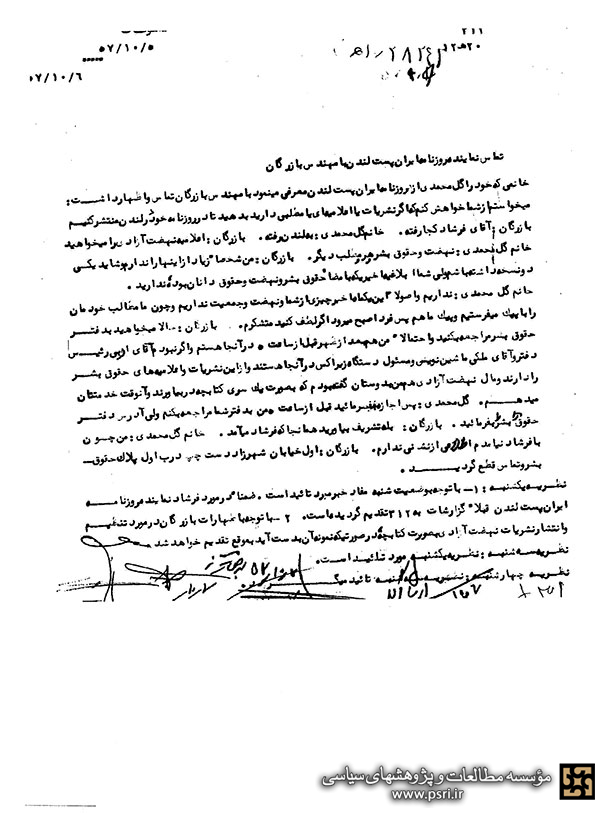 ۲۱۱
۵۷/۱۰/۵
۵۷/۱۰/۶
تماس نماینده روزنامه ایران پست لندن با مهندس بازرگان
خانمی که خود را گل محمدی از روزنامه ایران پست لندن معرفی مینمود با مهندس بازرگان تماس و اظهار داشت :
میخواستم از شما خواهش کنم که اگر نشریات یا اعلامیه‌ای یا مطلبی دارید بدهید تا در روزنامه خود در لندن منتشر کنیم
بازرگان : آقای فرشاد کجا رفته . خانم گل محمدی : به لندن رفته . بازرگان : اعلامیه نهضت آزادی را میخواهید
خانم گل محمدی : نهضت و حقوق بشر و هر مطلب دیگر . بازرگان : من شخصا" زیاد از اینها را ندارم و شاید یکی
دو نسخه داشته باشم ولی شما ابلاغیه‌ها خبریکه با مضاء حقوق بشر و نهضت و حقوق دانان بوده ندارید .
خانم گل محمدی : نداریم و اصولا" این یکماه ما خبر چیزی از شما و نهضت و جمعیت نداریم و چون ما مطالب خودمان
را با پیک میفرستیم و پیک ما هم پس فردا صبح میرود اگر لطف کنید متشکرم . بازرگان : حالا میخواهید به دفتر
حقوق بشر مراجعه کنید و احتمالا" من هم بعد از ظهر قبل از ساعت ۵ در آنجا هستم و اگر نبودم آقای رئیس
دفتر و آقای ملکی ماشین نویس و مسئول دستگاه زیراکس در آنجا هستند و از این نشریات و اعلامیه‌های حقوق بشر
را دارند و مال نهضت آزادی هم من به دوستان گفته بودم که بصورت یک سری کتابچه در بیاورند و آنوقت خدمتتان
میدهم . گل محمدی : پس اجازه بفرمائید قبل از ساعت ۵ من به دفتر شما مراجعه میکنم ولی آدرس دفتر
حقوق بشر را بفرمائید . بازرگان : بله تشریف بیاورید همانجا که فرشاد میآمد . خانم گل محمدی : من چون
با فرشاد نیامدم اطلاعی از نشانی ندارم . بازرگان : اول خیابان شهرزاد دست چپ درب اول پلاک حقوق
بشر و تماس قطع گردید .
نظریه یکشنبه : ۱- با توجه بوضعیت شنبه مفاد خبر مورد تائید است . ضمنا" در مورد فرشاد نماینده روزنامه
ایران پست لندن قبلا" گزارشات به ۳۱۲ تقدیم گردیده است . ۲- با توجه با ظهارات بازرگان در مورد تنظیم
و انتشار نشریات نهضت آزادی بصورت کتابچه در صورتیکه نمونه آن بدست آید بموقع تقدیم خواهد شد
نظریه سه شنبه : نظریه یکشنبه مورد تائید است .
نظریه چهارشنبه
مؤسسه مطالعات و پژوهشهای سیاسی
www.psri.ir